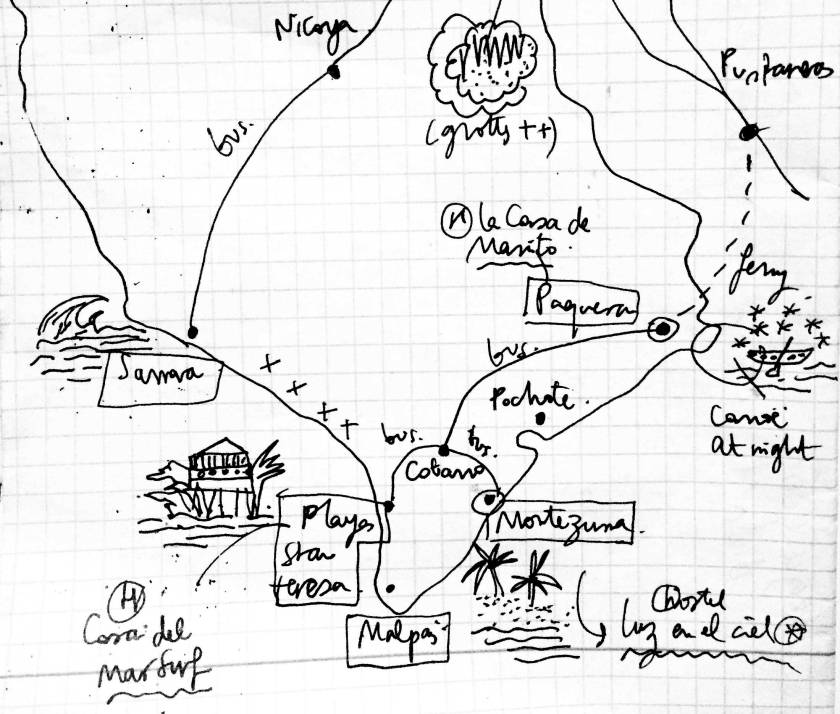 Nicoya
Puntarenas
bus.
(grotts ++)
H la Casa de
Manito.
ferry
Paquera
bus.
Samara
Pochote.
Canoë
at night
bus.
bus.
Cobano
Playas
Sta
teresa
Montezuma
H
Casa del
Mar Surf
Malpaís
Hostel
luz en el ciel